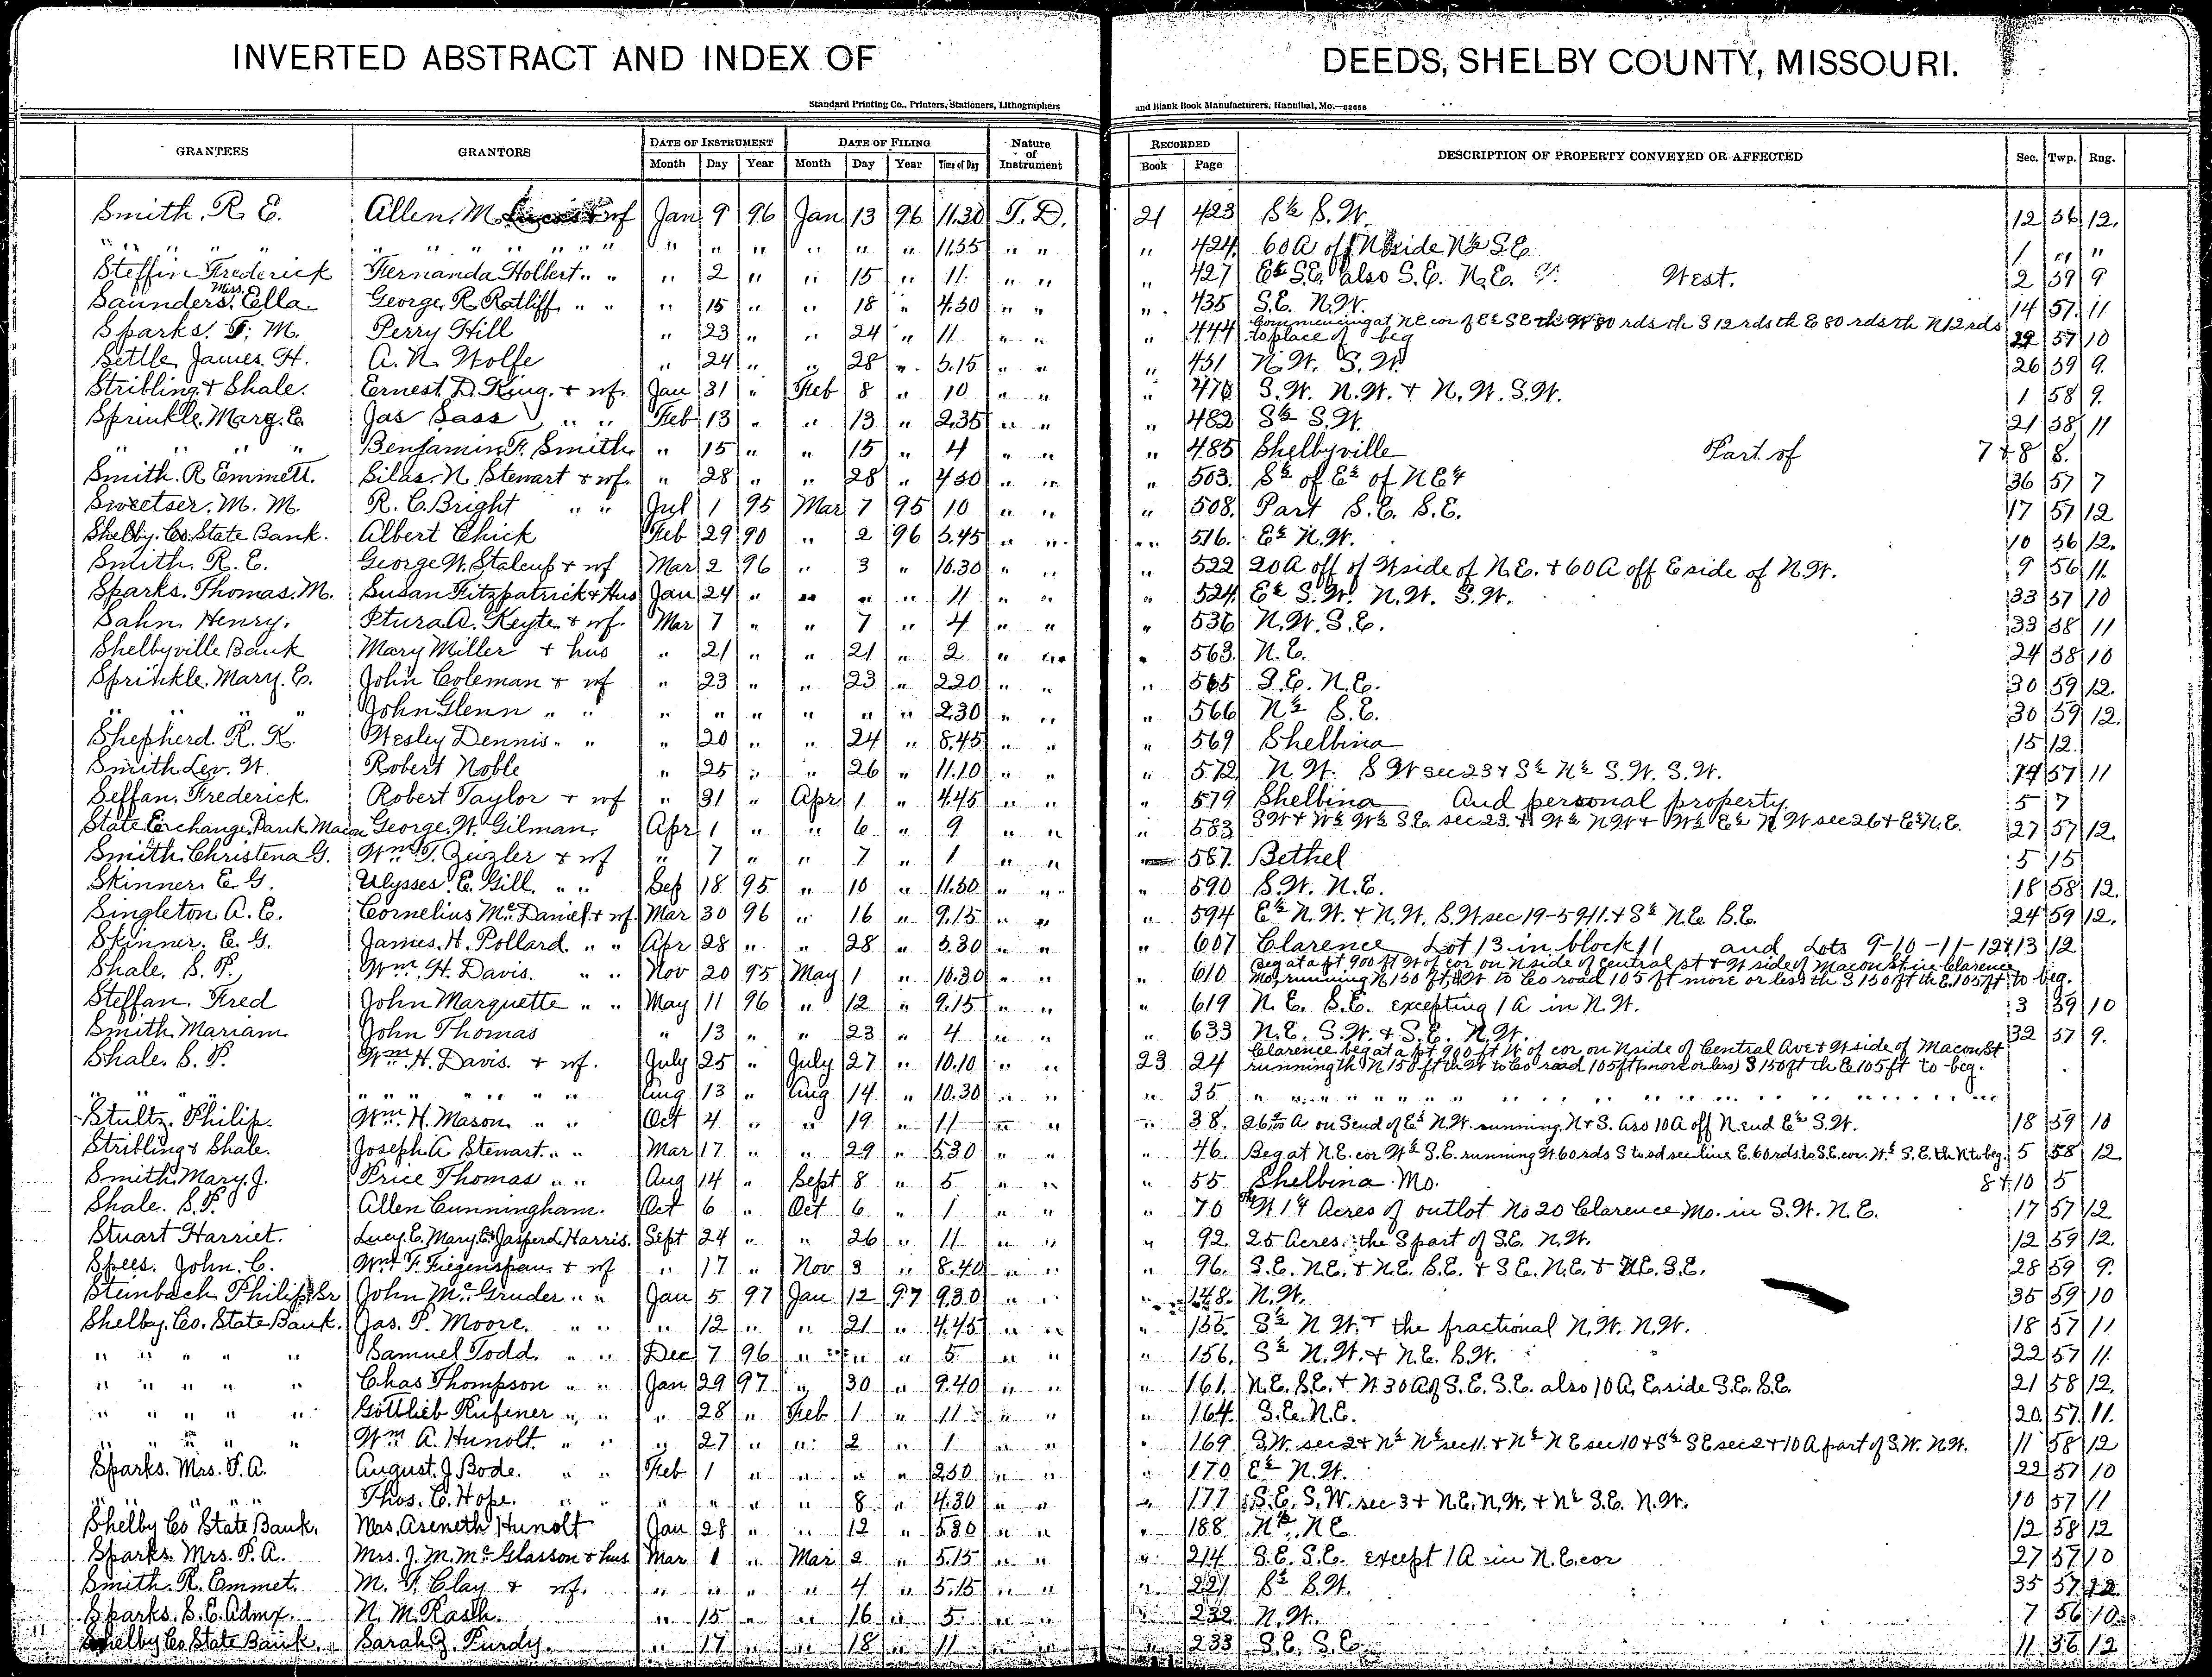 INVERTED ABSTRACT AND INDEX OF DEEDS, SHELBY COUNTY, MISSOURI.
Standard Printing Co., Printers, Stationers, Lithographers and Blank Book Manufacturers, Hannibal, Mo.—82656
GRANTEES GRANTORS DATE OF INSTRUMENT DATE OF FILING Nature of Instrument RECORDED DESCRIPTION OF PROPERTY CONVEYED OR AFFECTED Sec. Twp. Rng.
Month Day Year Month Day Year Time of Day Book Page
Smith, R. E. Allen, M. wf Jan 9 96 Jan 13 96 11.30 T. D. 21 423 S½ S.W. 12 56 12.
" " " " " " " " " " " " " " " " " 11.35 " " " 424 60 A off N side N½ S.E. 1 " "
Steffin Frederick Fernanda Holbert " " " 2 " " 15 " 11. " " " 427 E½ S.E. also S.E. N.E. West. 2 59 9
Saunders, Miss Ella George R. Ratliff " " " 15 " " 18 " 4.30 " " " 435 S.E. N.W. 14 57 11
Sparks, T. M. Perry Hill " 23 " " 24 " 11 " " " 444 Commencing at N E cor of E½ S E th W 80 rds th S 12 rds th E 80 rds th N 12 rds to place of beg 22 57 10
Settle, James, H. A. N. Wolfe " 24 " " 28 " 3.15 " " " 451 N.W. S.W. 26 59 9.
Stribling & Shale. Ernest D. King. & wf. Jan 31 " Feb 8 " 10 " " " 470 S.W. N.W. & N.W. S.W. 1 58 9.
Sprinkle, Marg. E. Jas Sass " " Feb 13 " " 13 " 2.35 " " " 482 S½ S.W. 21 58 11
" " " Benjamin F. Smith " 15 " " 15 " 4 " " " 485 Shelbyville Part of 7 & 8 8.
Smith, R Emmett. Silas N. Stewart & wf. " 28 " " 28 " 4.30 " " " 503. S½ of E½ of N E¼ 36 57 7
Sweetser, M. M. R. C. Bright " " Jul 1 95 Mar 7 95 10 " " " 508. Part S.E. S.E. 17 57 12
Shelby Co. State Bank. Albert Chick Feb 29 90 " 2 96 3.45 " " " 516. E½ N.W. 10 56 12.
Smith, R. E. George W. Stalcup & wf Mar 2 96 " 3 " 10.30 " " " 522 20 A off of W side of N.E. & 60 A off E side of N.W. 9 56 11.
Sparks, Thomas, M. Susan Fitzpatrick & Hus Jan 24 " " " " 11 " " " 524. E½ S.W. N.W. S.W. 33 57 10
Sahn, Henry. Keyte & wf. Mar 7 " " 7 " 4 " " " 536 N.W. S.E. 33 58 11
Shelbyville Bank Mary Miller & hus " 21 " " 21 " 2 " " " 563. N.E. 24 58 10
Sprinkle, Mary. E. John Coleman & wf " 23 " " 23 " 2.20 " " " 565 S.E. N.E. 30 59 12.
" " " John Glenn " " " " " " " " 2.30 " " " 566 N½ S.E. 30 59 12.
Shepherd, R. K. Wesley Dennis " " " 20 " " 24 " 8.45 " " " 569 Shelbina 15 12.
Smith Lev. W. Robert Noble " 25 " " 26 " 11.10 " " " 572 N W. S W sec 23 & S½ N½ S.W. S.W. 14 57 11
Seffan, Frederick. Robert Taylor & wf " 31 " Apr 1 " 4.45 " " " 579 Shelbina And personal property 5 7
State Exchange Bank Macon George. W. Gilman. Apr 1 " " 6 " 9 " " " 583 S W & W½ W½ S.E. sec 23. & W½ N W & W½ E½ N W sec 26 & E½ N.E. 27 57 12.
Smith Christena G. Wm T. Zeizler & wf " 7 " " 7 " 1 " " 587. Bethel 5 15
Skinner, E. G. Ulysses. E. Gill. " " Sep 18 95 " 10 " 11.30 " " " 590 S.W. N.E. 18 58 12.
Singleton A. E. Cornelius McDaniel & wf Mar 30 96 " 16 " 9.15 " " " 594 E½ N.W. & N.W. S.W sec 19-59 11. & S½ N.E. S.E. 24 59 12.
Skinner. E. G. James, H. Pollard. " " Apr 28 " " 28 " 3.30 " " " 607 Clarence Lot 13 in block 11 and Lots 9-10-11-12 & 13 12
Shale, S. P. Wm. H. Davis. " " Nov 20 95 May 1 " 10.30 " " " 610 Beg at a pt 900 ft W of cor on N side of Central st & W side of Macon St in Clarence Mo, running N 150 ft, th W to Co road 105 ft more or less th S 150 ft th E 105 ft to beg.
Steffan, Fred John Marquette " " May 11 96 " 12 " 9.15 " " " 619 N. E. S.E. excepting 1 A in N.W. 3 59 10
Smith Mariam John Thomas " 13 " " 23 " 4 " " " 633 N.E. S.W. & S.E. N.W. 32 57 9.
Shale. S. P. Wm H. Davis. & wf. July 25 " July 27 " 10.10 " " 23 24 Clarence beg at a pt 900 ft W of cor on N side of Central Ave & W side of Macon St running th N 150 ft th W to Co road 105 ft (more or less) S 150 ft th E 105 ft to beg.
" " " " " " " " " Aug 13 " Aug 14 " 10.30 " " " 35 " " " " " "
Stultz, Philip. Wm. H. Mason, " " Oct 4 " " 19 " 11 " " " 38. A on S end of E½ N.W. running N & S. also 10 A off N. end E½ S.W. 18 59 10
Stribling & Shale. Joseph A Stewart " " Mar 17 " " 29 " 5.30 " " " 46. Beg at N.E. cor W½ S.E. running W 60 rds S to sd sec line E. 60 rds. to S.E. cor. W½ S.E. th N to beg. 5 58 12
Smith Mary. J. Price Thomas " " Aug 14 " Sept 8 " 5 " " " 55 Shelbina Mo. 8 & 10 5
Shale. S. P. Allen Cunningham. Oct 6 " Oct 6 " 1 " " " 70 The W 1¼ Acres of outlot No 20 Clarence Mo. in S.W. N.E. 17 57 12
Stuart Harriet. Lucy. E. Mary. E. & Jasper d. Harris. Sept 24 " " 26 " 11 " " " 92. 25 Acres the S part of S.E. N.W. 12 59 12.
Spees. John, C. Wm F. Fiegenspan & wf " 17 " Nov 3 " 8.40 " " " 96. S.E. N.E. & N.E. S.E. & S.E. N.E. & N.E. S.E. 28 59 9.
Steinbach Philip Sr John McGruder " " Jan 5 97 Jan 12 97 9.30 " " " 148. N.W. 35 59 10
Shelby. Co. State Bank. Jas. P. Moore. " " " 12 " " 21 " 4.45 " " " 155 S½ N W. & the fractional N.W. N.W. 18 57 11
" " " " " Samuel Todd. " " Dec 7 96 " " " 5 " " " 156. S½ N.W. & N.E. S.W. 22 57 11
" " " " " Chas Thompson " " Jan 29 97 " 30 " 9.40 " " " 161. N.E. S.E. & W 30 A of S.E. S.E. also 10 A. E. side S.E. S.E. 21 58 12.
" " " " " Gottlieb Rufener " " " 28 " Feb 1 " 11 " " " 164. S.E. N.E. 20 57 11.
" " " " " Wm A. Hunolt. " " " 27 " " 2 " 1 " " " 169 S.W. sec 2 & N½ N½ sec 11. & N½ N E sec 10 & S½ S E sec 2 & 10 A part of S.W. N.W. 11 58 12
Sparks. Mrs. P. A. August. J. Bode. " " Feb 1 " " " " 2.30 " " " 170 E½ N.W. 22 57 10
" " " " Thos. C. Hope. " " " " " " 8 " 4.30 " " " 177 S.E. S.W. sec 3 & N.E. N.W. & N½ S.E. N.W. 10 57 11
Shelby Co State Bank. Mrs. Aseneth Hunolt Jan 28 " " 12 " 5.30 " " " 188 N½ N E 12 58 12
Sparks. Mrs. P. A. Mrs. J. M. McGlasson & hus Mar 1 " Mar 2 " 5.15 " " " 214 S.E. S.E. except 1 A in N. E. cor 27 57 10
Smith. R. Emmet. M. F. Clay & wf. " " " " 4 " 5.15 " " " 221 S½ S.W. 35 57 12
Sparks. S. E. Admx. N. M. Rash. " 15 " " 16 " 5. " " " 232 N.W. 7 56 10
Shelby Co State Bank. Sarah J. Purdy. " 17 " " 18 " 11 " " " 233 S.E. S.E. 11 56 12